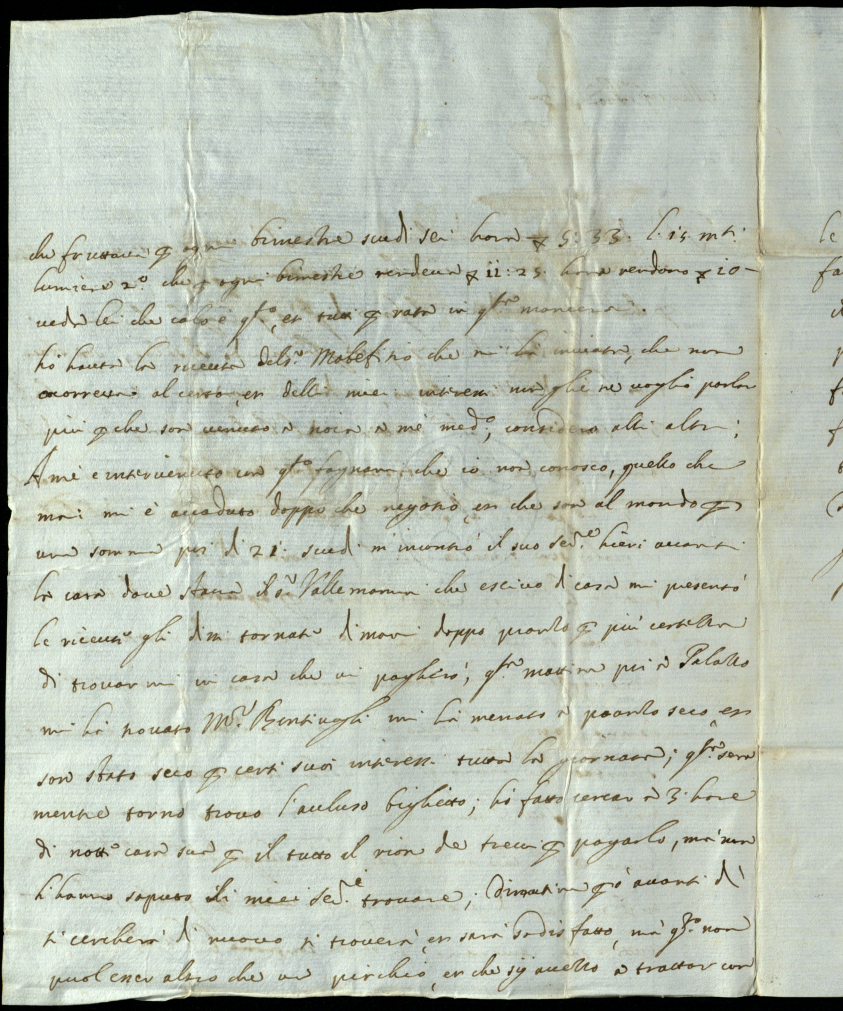 che fruttava p ogni bimestre scudi sei hora 5: 33. l. 15 mti
lumiere 2.o che p ogni bimestre rendeva 11: 25 hora rendono 10-
veda lei che calo è q.to, et tutti p rata in q.ta maniera.
hò havuta la ricevuta del s.r che mi hà inviata, che non
occorreva al certo, et delli miei interessi non gli ne voglio parlar
più p che son venuto a noia a me med.o, considera alli altri;
A me è intervenuto un q.to che io non conosco, quello che
mai mi è accaduto doppo che negotio, et che son al mondo p
una somma poi di 21: scudi m'incontrò il suo ser.e hieri avanti
la casa dove stava il s.r Vallemanni che escivo di casa mi presentò
le ricevute gli dissi tornate dimani doppo pranzo p più certezza
di trovarmi in casa che vi pagherò, q.ta mattina poi a Palazzo
mi hà trovato M.r Bentivogli mi hà menato a pranzo seco et
son stato seco p certi suoi interessi tutta la giornata; q.ta sera
mentre torno trovo l'accluso biglietto; hò fatto cercar a 3 hore
di notte casa sua p il tutto il rion de Trevi p pagarlo, mà non
l'hanno saputo li miei ser.e trovare; Dimattina p.ò avanti dì
si cercherà di nuovo si troverà, et sarà sodisfatto, mà q.to non
puol esser altro che un pirchio, et che sij avezzo a trattar con
le
fa